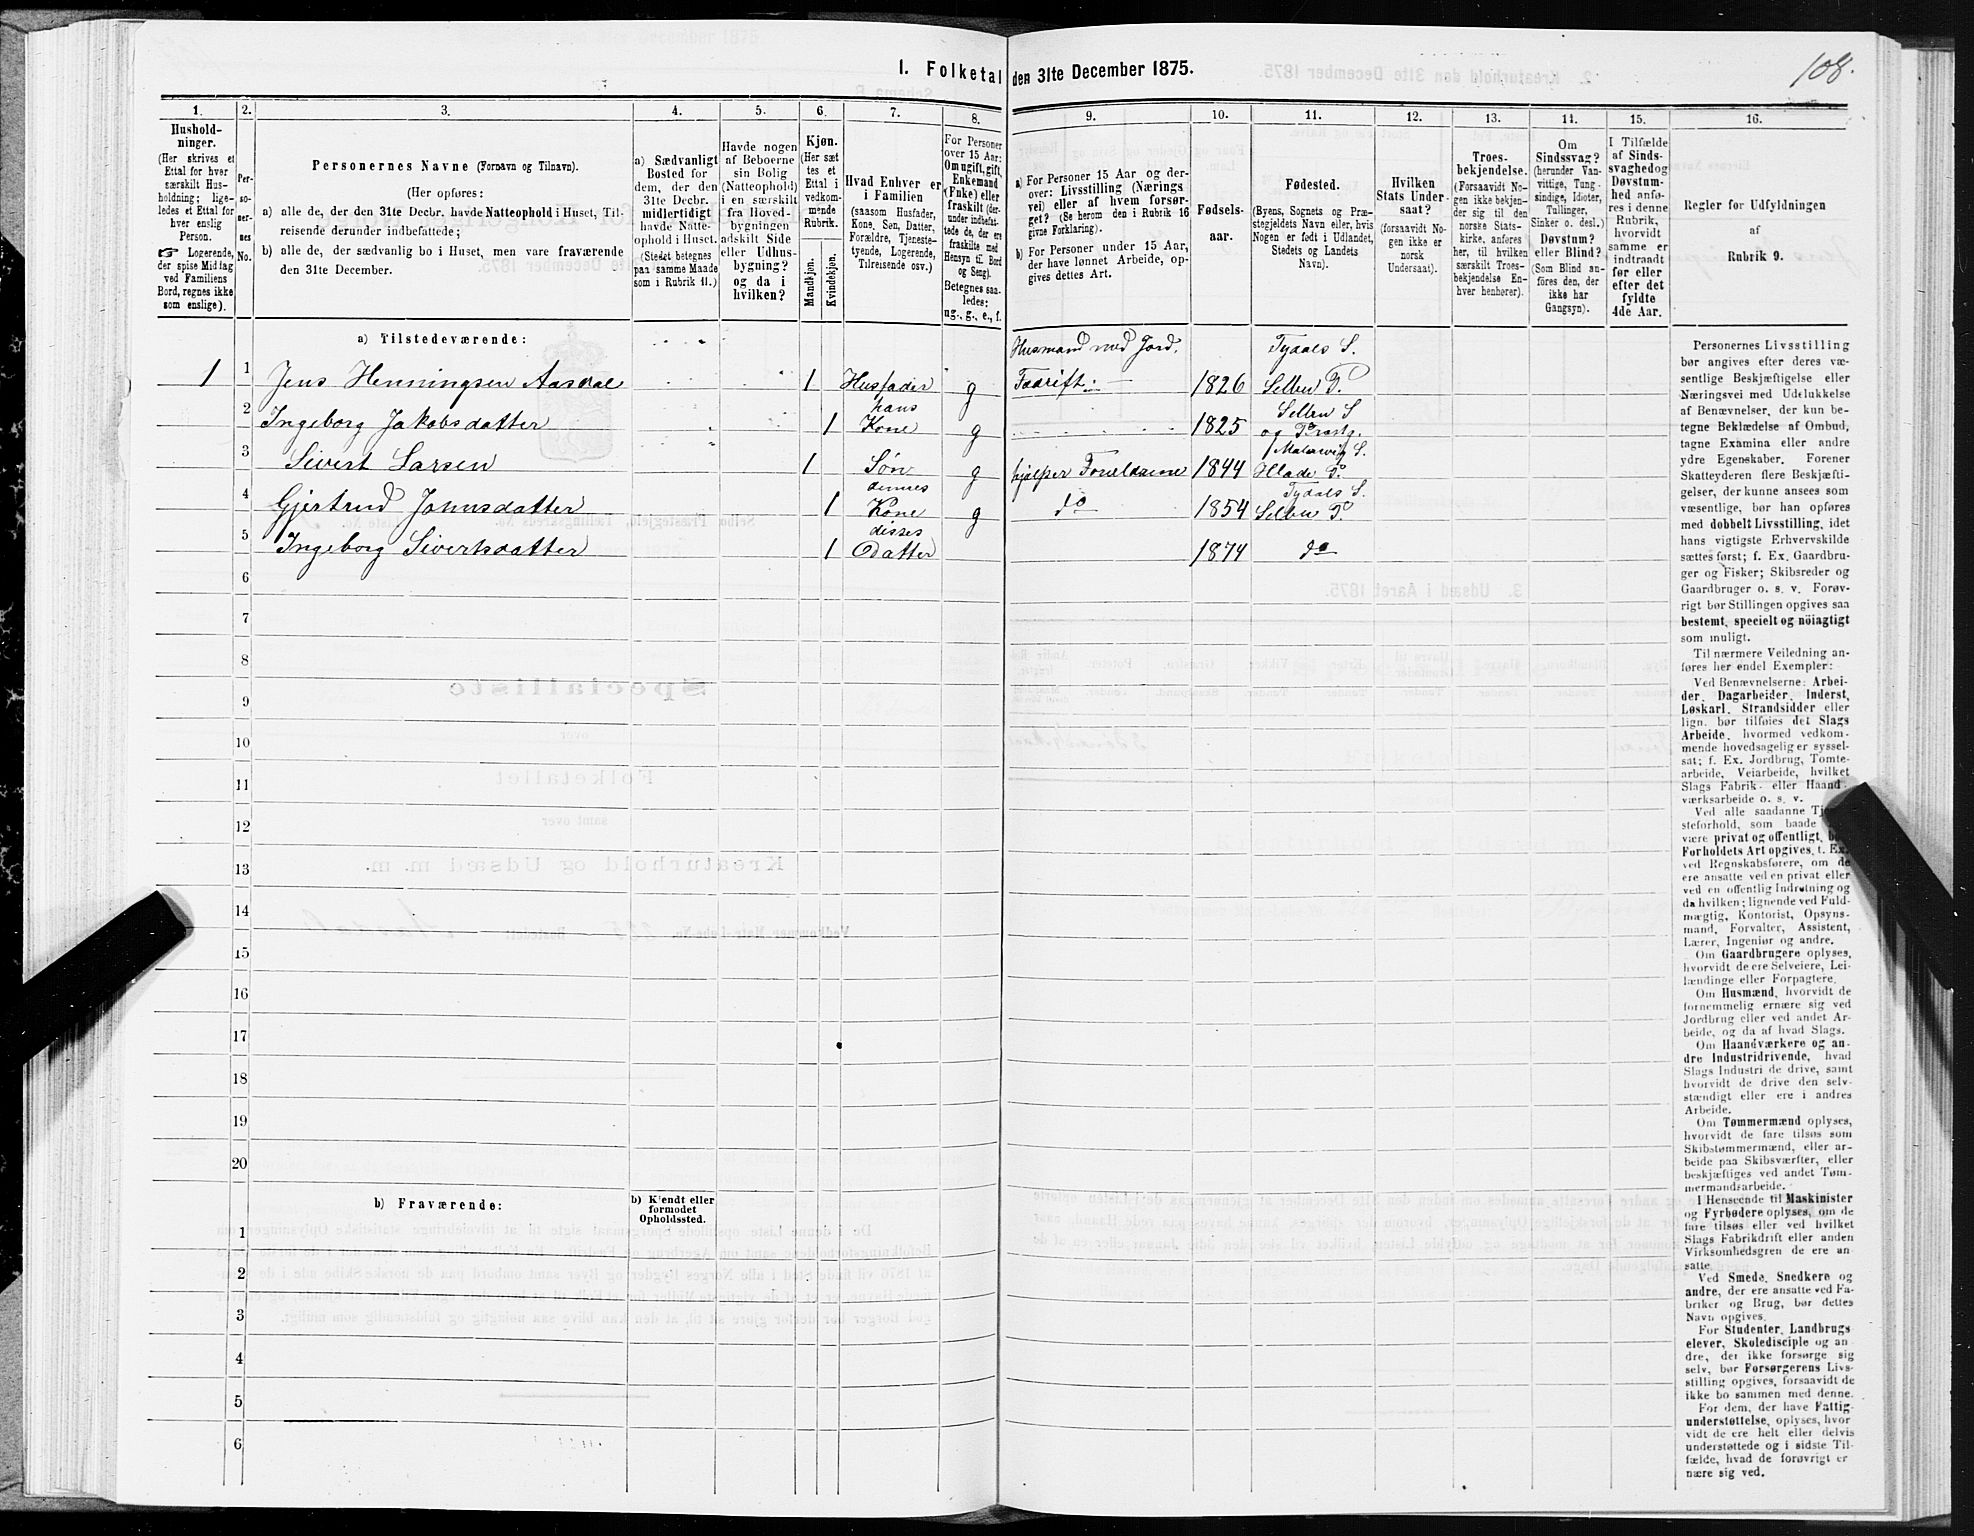 108.
I. Folketal den 31te December 1875.
1.
Hushold-
ninger.
(Her skrives et
Ettal for hver
særskilt Hus-
holdning; lige-
ledes et Ettal for
hver enslig
Person.
☞ Logerende,
der spise Middag
ved Familiens
Bord, regnes ikke
som enslige).
2.
Per-
soner-
nes
No.
3.
Personernes Navne (Fornavn og Tilnavn).
(Her opføres:
a) alle de, der den 31te Decbr. havde Natteophold i Huset, Til-
reisende derunder indbefattede;
b) alle de, der sædvanlig bo i Huset, men vare fraværende
den 31te December.
4.
a) Sædvanligt
Bosted for
dem, der den
31te Decbr.
midlertidigt
havde Natte-
ophold i Huset.
(Stedet betegnes
paa samme Maade
som i Rubrik 11.)
5.
Havde nogen
af Beboerne
sin Bolig
(Natteophold)
i en særskilt
fra Hoved-
bygningen
adskilt Side
eller Udhus-
bygning?
og da i
hvilken?
6.
Kjøn.
(Her sæt
tes et
Ettal i
vedkom-
mende
Rubrik.
Mandkjøn.
Kvindekjøn.
7.
Hvad Enhver er
i Familien
(saasom Husfader,
Kone, Søn, Datter,
Forældre, Tjeneste-
tyende, Logerende,
Tilreisende osv.)
8.
For Personer
over 15 Aar:
Om ugift, gift,
Enkemand
(Enke) eller
fraskilt (der-
under indbefat-
tede de, der ere
fraskilte med
Hensyn til Bord
og Seng).
Betegnes saa-
ledes:
ug., g., e., f.
9.
a) For Personer 15 Aar og der-
over: Livsstilling (Nærings
vei) eller af hvem forsør-
get? (Se herom den i Rubrik 16
givne Forklaring).
b) For Personer under 15 Aar,
der have lønnet Arbeide, op-
gives dettes Art.
10.
Fødsels-
aar.
11.
Fødested.
(Byens, Sognets og Præ-
stegjeldets Navn eller, hvis
Nogen er født i Udlandet,
Stedets og Landets
Navn).
12.
Hvilken
Stats Under-
saat?
(forsaavidt No-
gen ikke er
norsk
Undersaat).
13.
Troes-
bekjendelse.
(Forsaavidt No-
gen ikke bekjen-
der sig til den
norske Stats-
kirke, anføres
her, til hvilken
særskilt Troes-
bekjendelse En-
hver henhører).
14.
Om
Sindssvag?
(herunder Van-
vittige, Tung-
sindige, Idioter,
Tullinger,
Sinker o. desl.)
Døvstum?
eller Blind?
(Som Blind an-
føres den, der
ikke har
Gangsyn).
15.
I Tilfælde
af Sinds-
svaghed og
Døvstum-
hed anfø-
res i denne
Rubrik,
hvorvidt
samme er
indtraadt
før eller
efter det
fyldte
4de Aar.
16.
Regler for Udfyldningen
af
Rubrik 9.
a) Tilstedeværende:
1 1 Jens Henningsen Aasdal 1 Husfader g Husmand med Jord, Faarift 1826 Tydals S. Selbu P.
2 Ingeborg Jakobsdatter 1 hans Kone g 1825 Selbu S og Præstg.
3 Sivert Larsen 1 Søn g hjelper Foreldrene 1844 Malervig S. Hlade P.
4 Gjertrud Johnsdatter 1 dennes Kone g do 1854 Tydals S. Selbu P.
5 Ingeborg Sivertsdatter 1 disses Datter 1874 do
6
7
8
9
10
11
12
13
14
15
16
17
18
19
20
b) Fraværende:
b) Kjendt eller
formodet
Opholdssted.
1
2
3
4
5
6
Personernes Livsstilling
bør angives efter deres væ-
sentlige Beskjæftigelse eller
Næringsvei med Udelukkelse
af Benævnelser, der kun be-
tegne Beklædelse af Ombud,
tagne Examina eller andre
ydre Egenskaber. Forener
Skatteyderen flere Beskjæfti-
gelser, der kunne ansees som
væsentlige, bør han opføres
med dobbelt Livsstilling, idet
hans vigtigste Erhvervskilde
sættes først; f. Ex. Gaardbru-
ger og Fisker; Skibsreder og
Gaardbruger o. s. v. Forøv-
rigt bør Stillingen opgives saa
bestemt, specielt og nöiagtigt
som muligt.
Til nærmere Veiledning an-
føres her endel Exempler:
Ved Benævnelserne: Arbei-
der, Dagarbeider, Inderst,
Løskarl, Strandsidder eller
lign. bør tilføies det Slags
Arbeide, hvormed vedkom-
mende hovedsagelig er syssel-
sat; f. Ex. Jordbrug, Tomte-
arbeide, Veiarbeide, hvilket
Slags Fabrik- eller Haand-
værksarbeide o. s. v.
Ved alle saadanne
steforhold, som baade
være privat og offentligt,
Forholdets Art opgives, f. Ex.
ved Regnskabsførere, om de
ere ansatte ved en privat eller
ved en offentlig Indretning og
da hvilken; lignende ved Fuld-
mægtig, Kontorist, Opsyns-
mand, Forvalter, Assistent,
Lærer, Ingeniør og andre.
Om Gaardbrugere oplyses,
hvorvidt de ere Selveiere, Lei-
lændinge eller Forpagtere.
Om Husmænd, hvorvidt de
fornemmelig ernære sig ved
Jordbrug eller ved andet Ar-
beide, og da af hvad Slags.
Om Haandværkere og an-
dre Industridrivende, hvad
Slags Industri de drive, samt
hvorvidt de drive den selv-
stændigt eller ere i andres
Arbeide.
Om Tømmermænd oplyses,
hvorvidt de fare tilsøs som
Skibstømmermænd, eller ar-
beide paa Skibsværfter, eller
beskjæftiges ved andet Tøm-
mermandsarbeide.
I Henseende til Maskinister
og Fyrbødere oplyses, om de
fare tilsøs eller ved hvilket
Slags Fabrikdrift eller anden
Virksomhedsgren de ere an-
satte.
Ved Smede, Snedkere og
andre, der ere ansatte ved Fa-
briker og Brug, bør dettes
Navn opgives.
For Studenter, Landbrugs
elever, Skoledisciple og an
dre, der ikke forsørge sig
selv, bør Forsørgerens Livs-
stilling opgives, forsaavidt de
ikke bo sammen med denne.
For dem, der have Fattig-
understøttelse, oplyses, hvor
vidt de ere helt eller delvis
understøttede og i sidste Til-
fælde, hvad de forøvrigt er
nære sig ved.